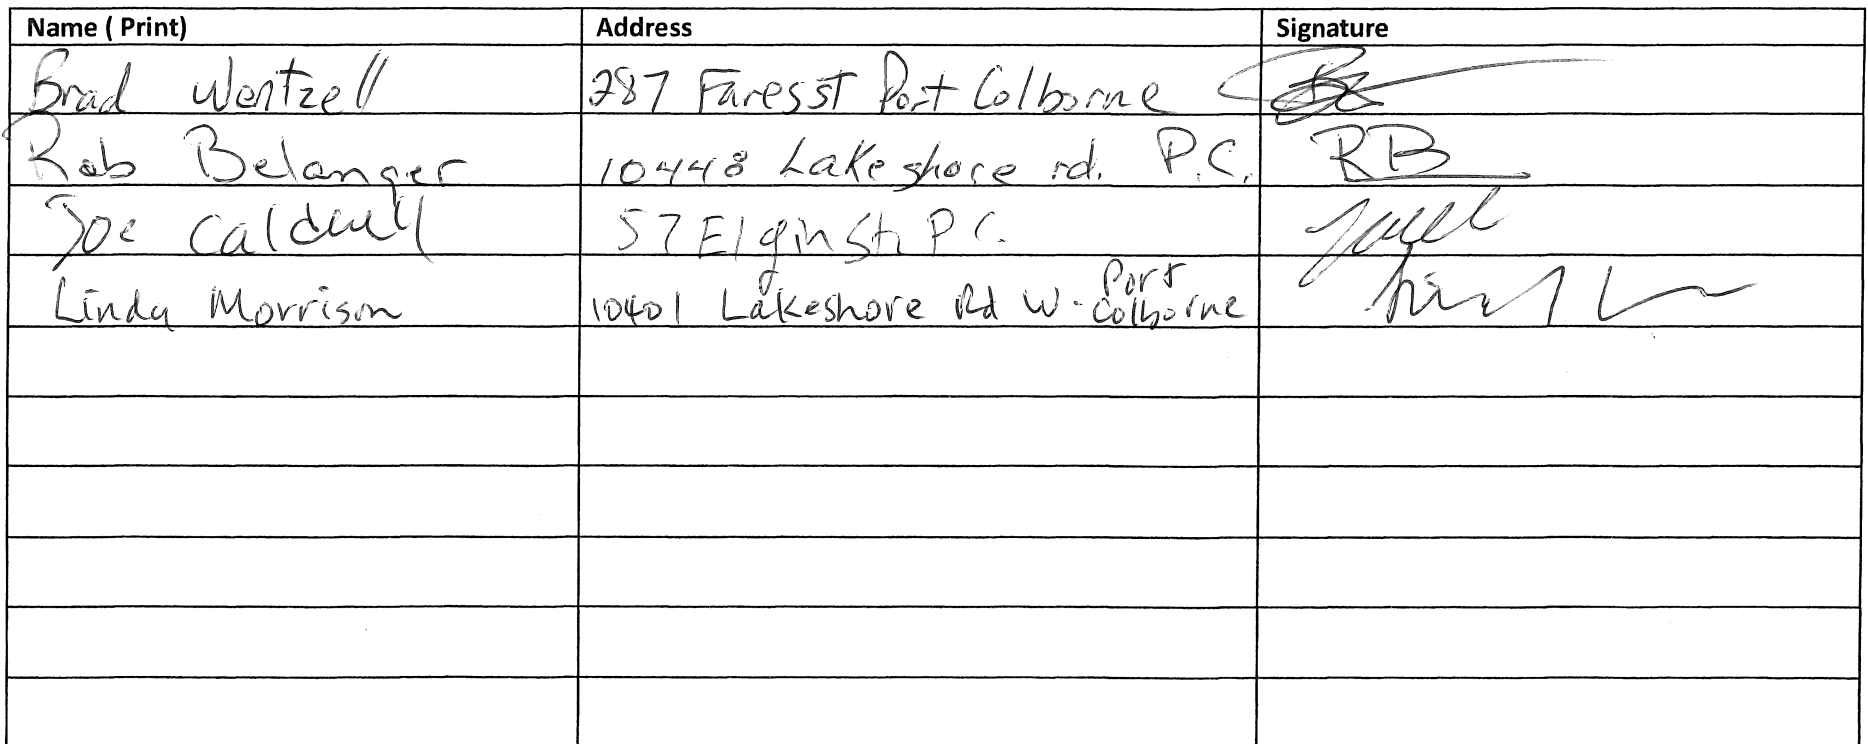 Name ( Print) Address Signature
Brad Wentzell 287 Fares st Port Colborne
Rob Belanger 10448 Lakeshore rd. P.C. RB
Joe Caldwell 57 Elgin St P.C.
Linda Morrison 10401 Lakeshore Rd W - Port Colborne